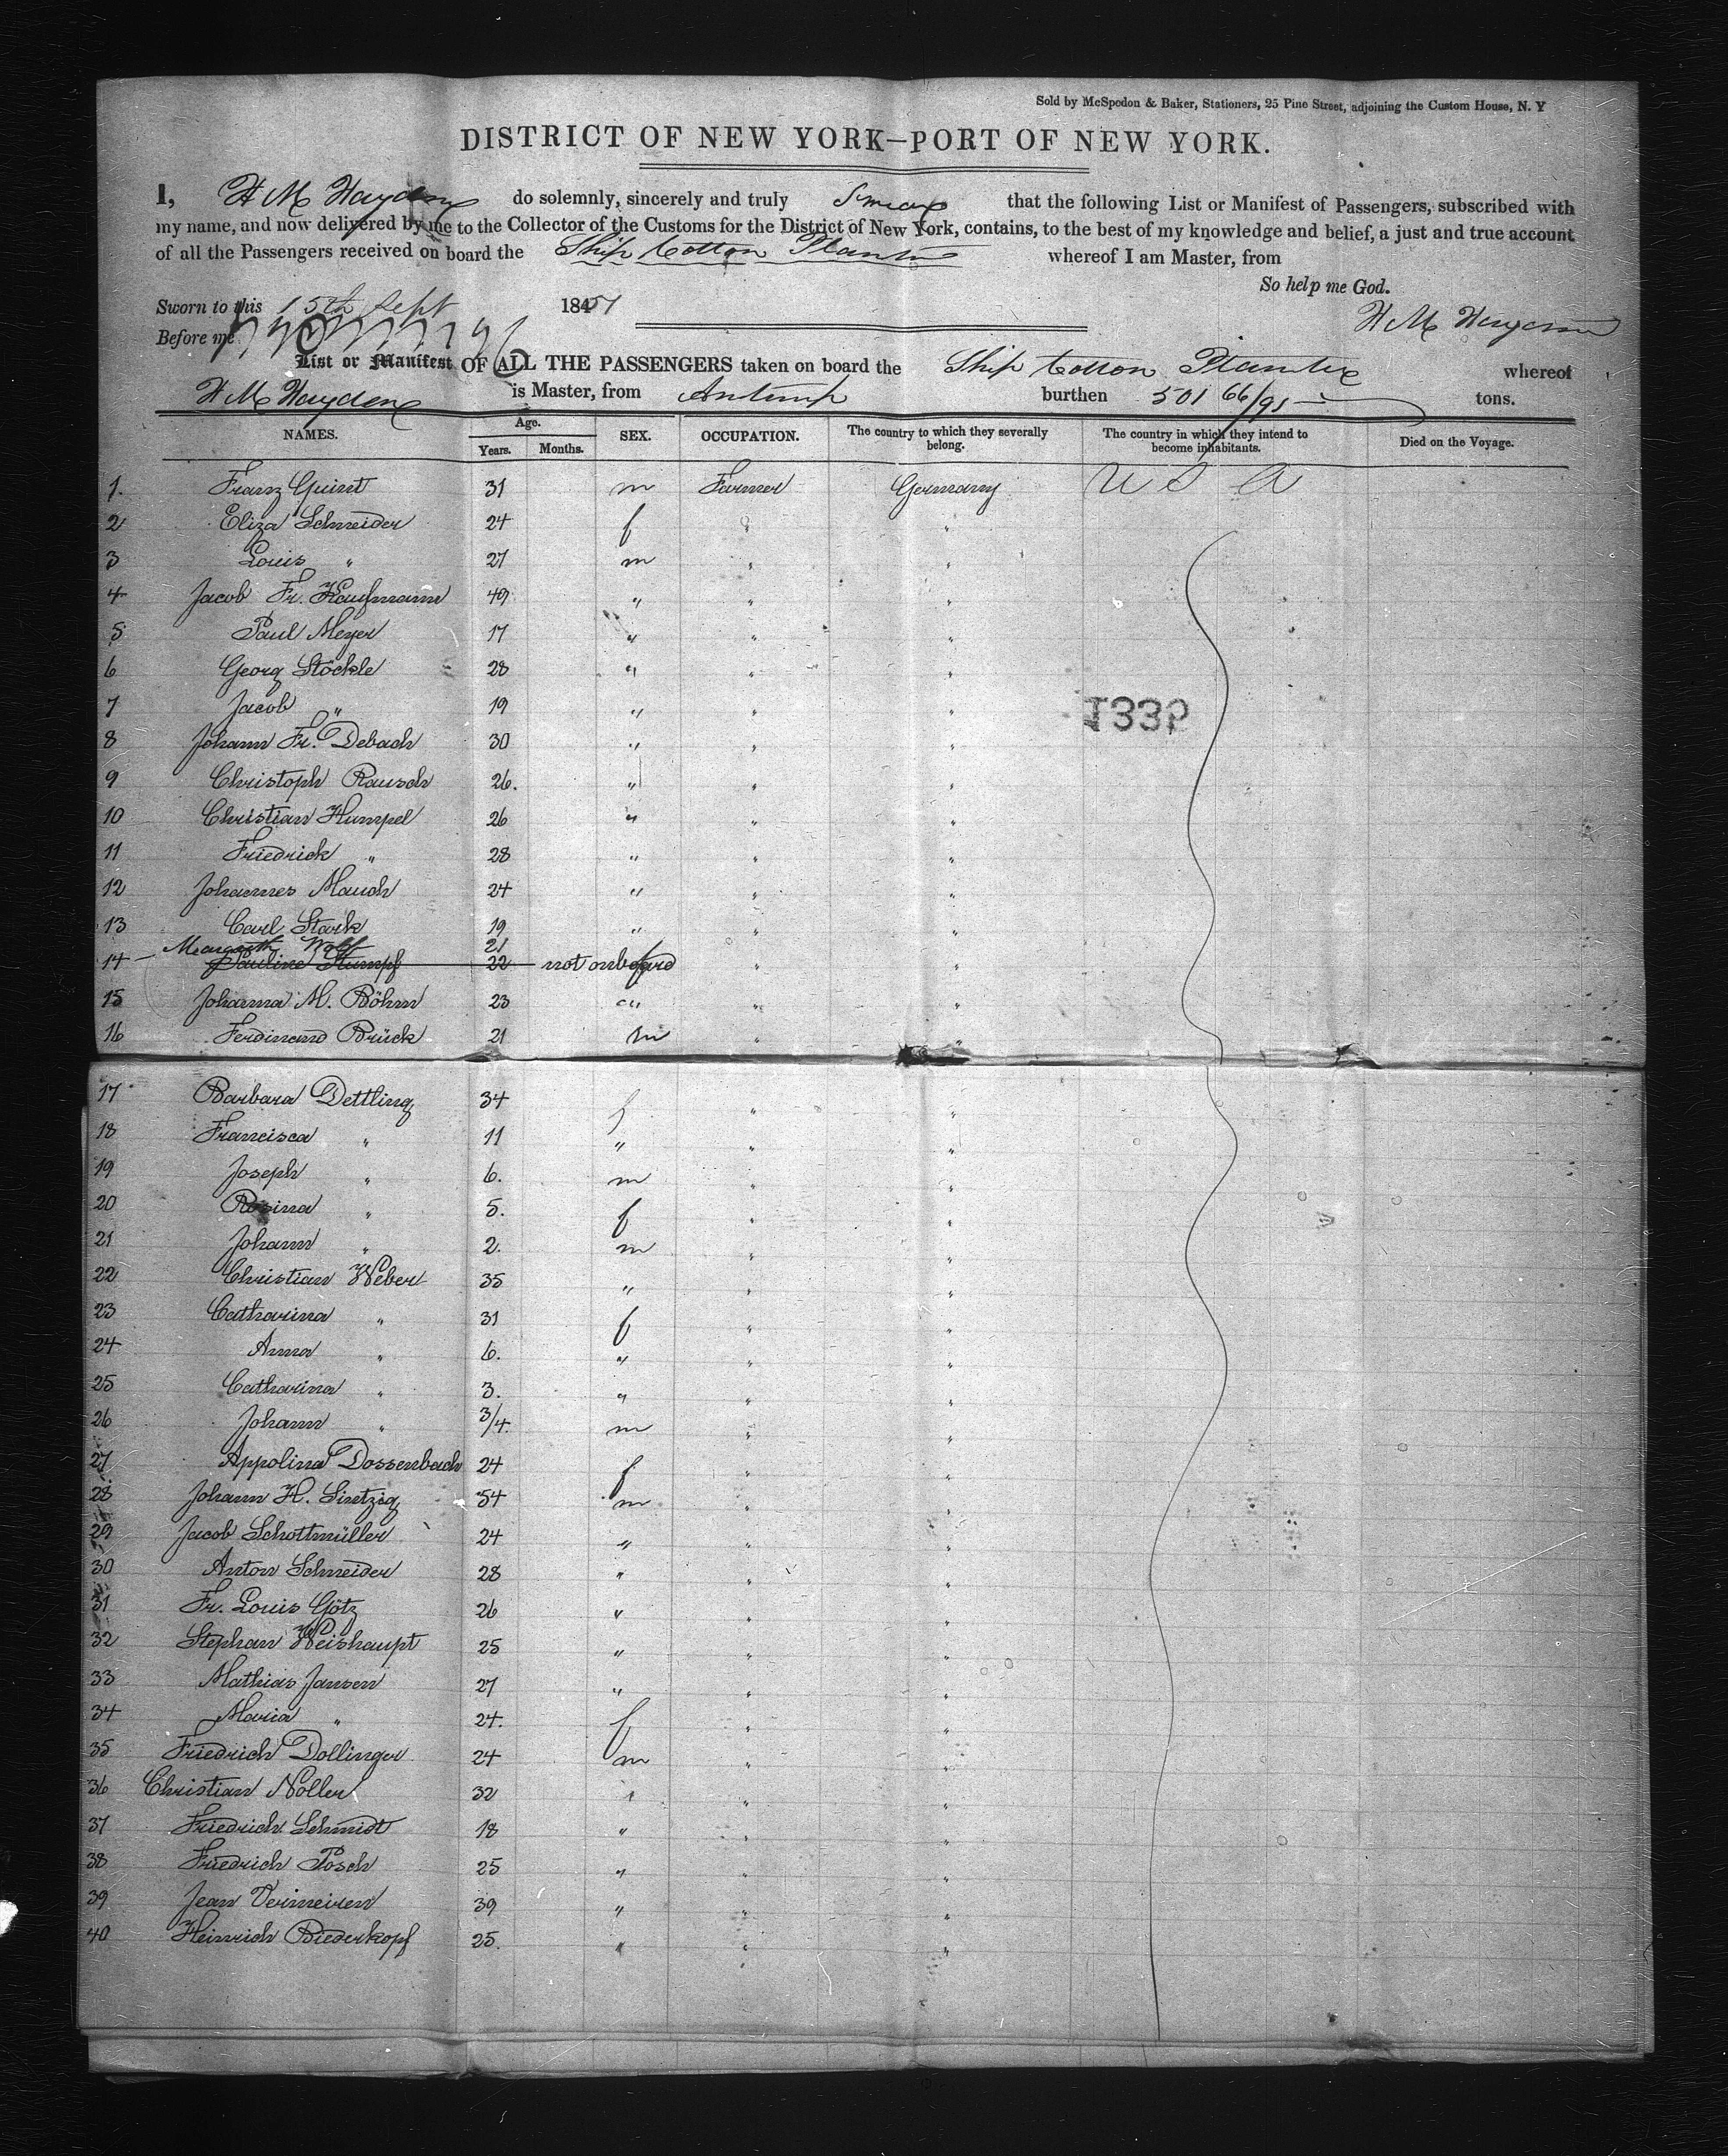 Sold by McSpedon & Baker, Stationers, 25 Pine Street, adjoining the Custom House, N. Y
DISTRICT OF NEW YORK—PORT OF NEW YORK.
I, H M Hayden do solemnly, sincerely and truly Swear that the following List or Manifest of Passengers, subscribed with
my name, and now delivered by me to the Collector of the Customs for the District of New York, contains, to the best of my knowledge and belief, a just and true account
of all the Passengers received on board the Ship Cotton Planter whereof I am Master, from
So help me God.
Sworn to this 15th Sept 1851 H M Hayden
Before me
List or Manifest OF ALL THE PASSENGERS taken on board the Ship Cotton Planter whereof
H M Hayden is Master, from Antwerp burthen 501 66/95 tons.
NAMES. Age. Years. Months. SEX. OCCUPATION. The country to which they severally belong. The country in which they intend to become inhabitants. Died on the Voyage.
1. Franz Guint 31 m Farmer Germany U S A
2 Eliza Schneider 24 f " "
3 Louis " 27 m " "
4 Jacob Fr. Kaufmann 49 " " "
5 Paul Meyer 17 " " "
6 Georg Stöckle 28 " " "
7 Jacob " 19 " " "
1339
8 Johann Fr. Debach 30 " " "
9 Christoph Rausch 26. " " "
10 Christian Humpel 26 " " "
11 Friedrick " 28 " " "
12 Johannes Mauch 24 " " "
13 Carl Stark 19 " " "
Margareth Wolf 21
14 Pauline Stumpf 22 not onboard f " "
15 Johanna M. Böhm 23 " " "
16 Ferdinand Brück 21 m " "
17 Barbara Dettling 34 f " "
18 Francisca " 11 " " "
19 Joseph " 6. m " "
20 Rosina " 5. f " "
21 Johann " 2. m " "
22 Christian Weber 35 " " "
23 Catharina " 31 f " "
24 Anna " 6. " " "
25 Catharina " 3. " " "
26 Johann " 3/4. m " "
27 Appolina Dossenbach 24 f " "
28 Johann H. Sintzig 54 m " "
29 Jacob Schottmüller 24 " " "
30 Anton Schneider 28 " " "
31 Fr. Louis Götz 26 " " "
32 Stephan Weishaupt 25 " " "
33 Mathias Jansen 27 " " "
34 Maria " 24. f " "
35 Friedrich Dollinger 24 m " "
36 Christian Noller 32 " " "
37 Friedrich Schmidt 18 " " "
38 Friedrich Posch 25 " " "
39 Jean Vermeiren 39 " " "
40 Heinrich Biederkopf 25. " " "